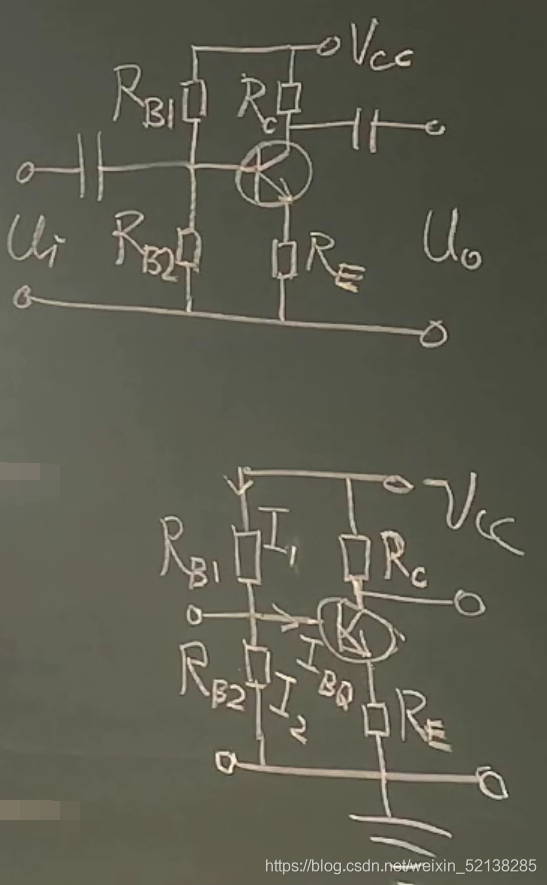 V_CC
R_B1 R_C
U_i R_B2 R_E U_o
V_CC
R_B1 I_1 R_C
R_B2 I_2 I_BQ R_E
https://blog.csdn.net/weixin_52138285